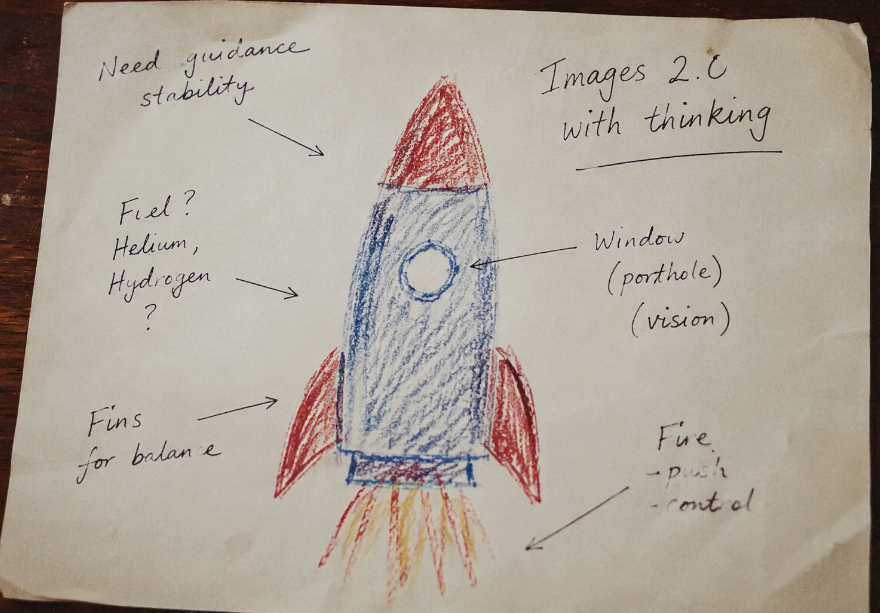 Need guidance
stability
Images 2.0
with thinking
Fuel?
Helium,
Hydrogen
?
Window
(porthole)
(vision)
Fins
for balance
Fire
-push
-control